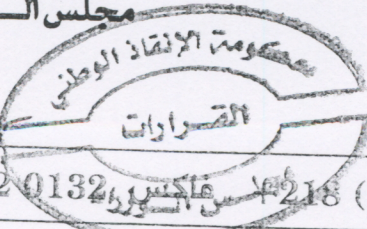 مجلس ال
حكومة الإنقاذ الوطني
القرارات
2 0132 فاكس +218 (